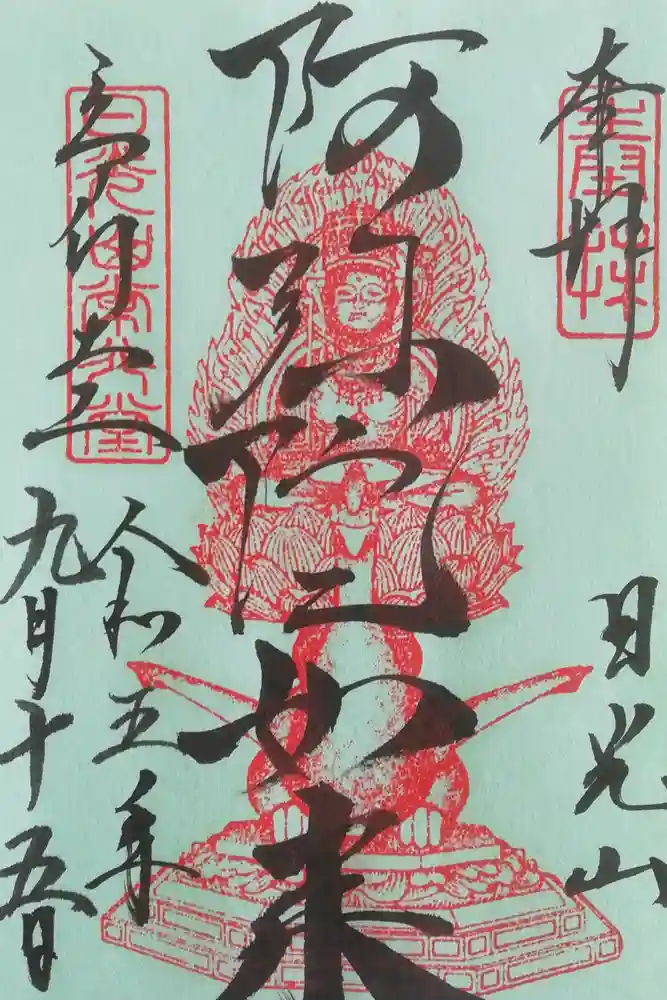 奉拝
日光山
阿弥陀如来
常行堂
日光山常行堂
令和五年
九月十五日